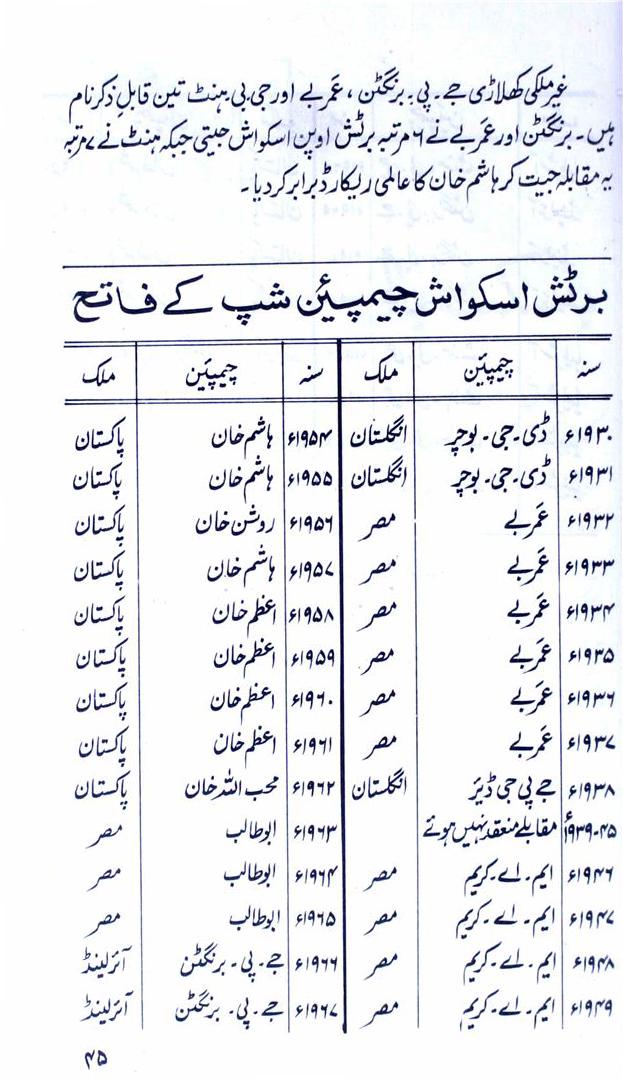 غیر ملکی کھلاڑی جے۔پی۔برنگٹن، عَمربے اور جی بی ہنٹ تین قابلِ ذکر نام
ہیں۔ برنگٹن اور عَمربے نے ۶ مرتبہ برٹش اوپن اسکواش جیتی جبکہ ہنٹ نے ۷ مرتبہ
یہ مقابلہ جیت کر ہاشم خان کا عالمی ریکارڈ برابر کر دیا۔
برٹش اسکواش چیمپئین شپ کے فاتح
سنہ چیمپئین ملک سنہ چیمپئین ملک
۱۹۳۰ء ڈی۔جی۔بوچر انگلستان ۱۹۵۴ء ہاشم خان پاکستان
۱۹۳۱ء ڈی۔جی۔بوچر انگلستان ۱۹۵۵ء ہاشم خان پاکستان
۱۹۳۲ء عَمربے مصر ۱۹۵۶ء روشن خان پاکستان
۱۹۳۳ء عَمربے مصر ۱۹۵۷ء ہاشم خان پاکستان
۱۹۳۴ء عَمربے مصر ۱۹۵۸ء اعظم خان پاکستان
۱۹۳۵ء عَمربے مصر ۱۹۵۹ء اعظم خان پاکستان
۱۹۳۶ء عَمربے مصر ۱۹۶۰ء اعظم خان پاکستان
۱۹۳۷ء عَمربے مصر ۱۹۶۱ء اعظم خان پاکستان
۱۹۳۸ء جے پی جی ڈیئر انگلستان ۱۹۶۲ء محب اللہ خان پاکستان
۱۹۳۹-۴۵ء مقابلے منعقد نہیں ہوئے ۱۹۶۳ء ابوطالب مصر
۱۹۴۶ء ایم۔اے۔کریم مصر ۱۹۶۴ء ابوطالب مصر
۱۹۴۷ء ایم۔اے۔کریم مصر ۱۹۶۵ء ابوطالب مصر
۱۹۴۸ء ایم۔اے۔کریم مصر ۱۹۶۶ء جے۔پی۔برنگٹن آئرلینڈ
۱۹۴۹ء ایم۔اے۔کریم مصر ۱۹۶۷ء جے۔پی۔برنگٹن آئرلینڈ
۴۵